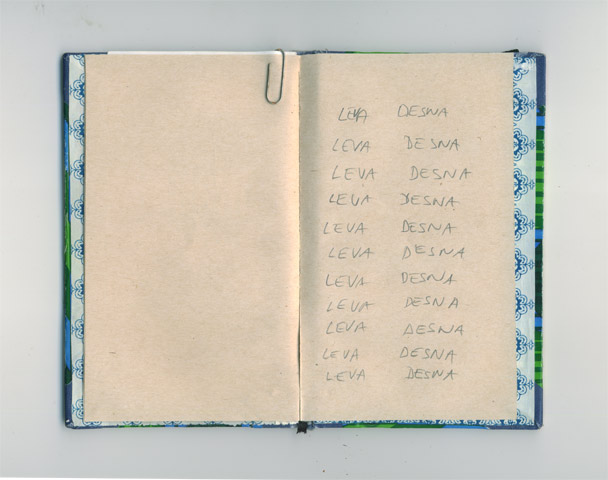 LEVA DESNA
LEVA DESNA
LEVA DESNA
LEVA DESNA
LEVA DESNA
LEVA DESNA
LEVA DESNA
LEVA DESNA
LEVA DESNA
LEVA DESNA
LEVA DESNA